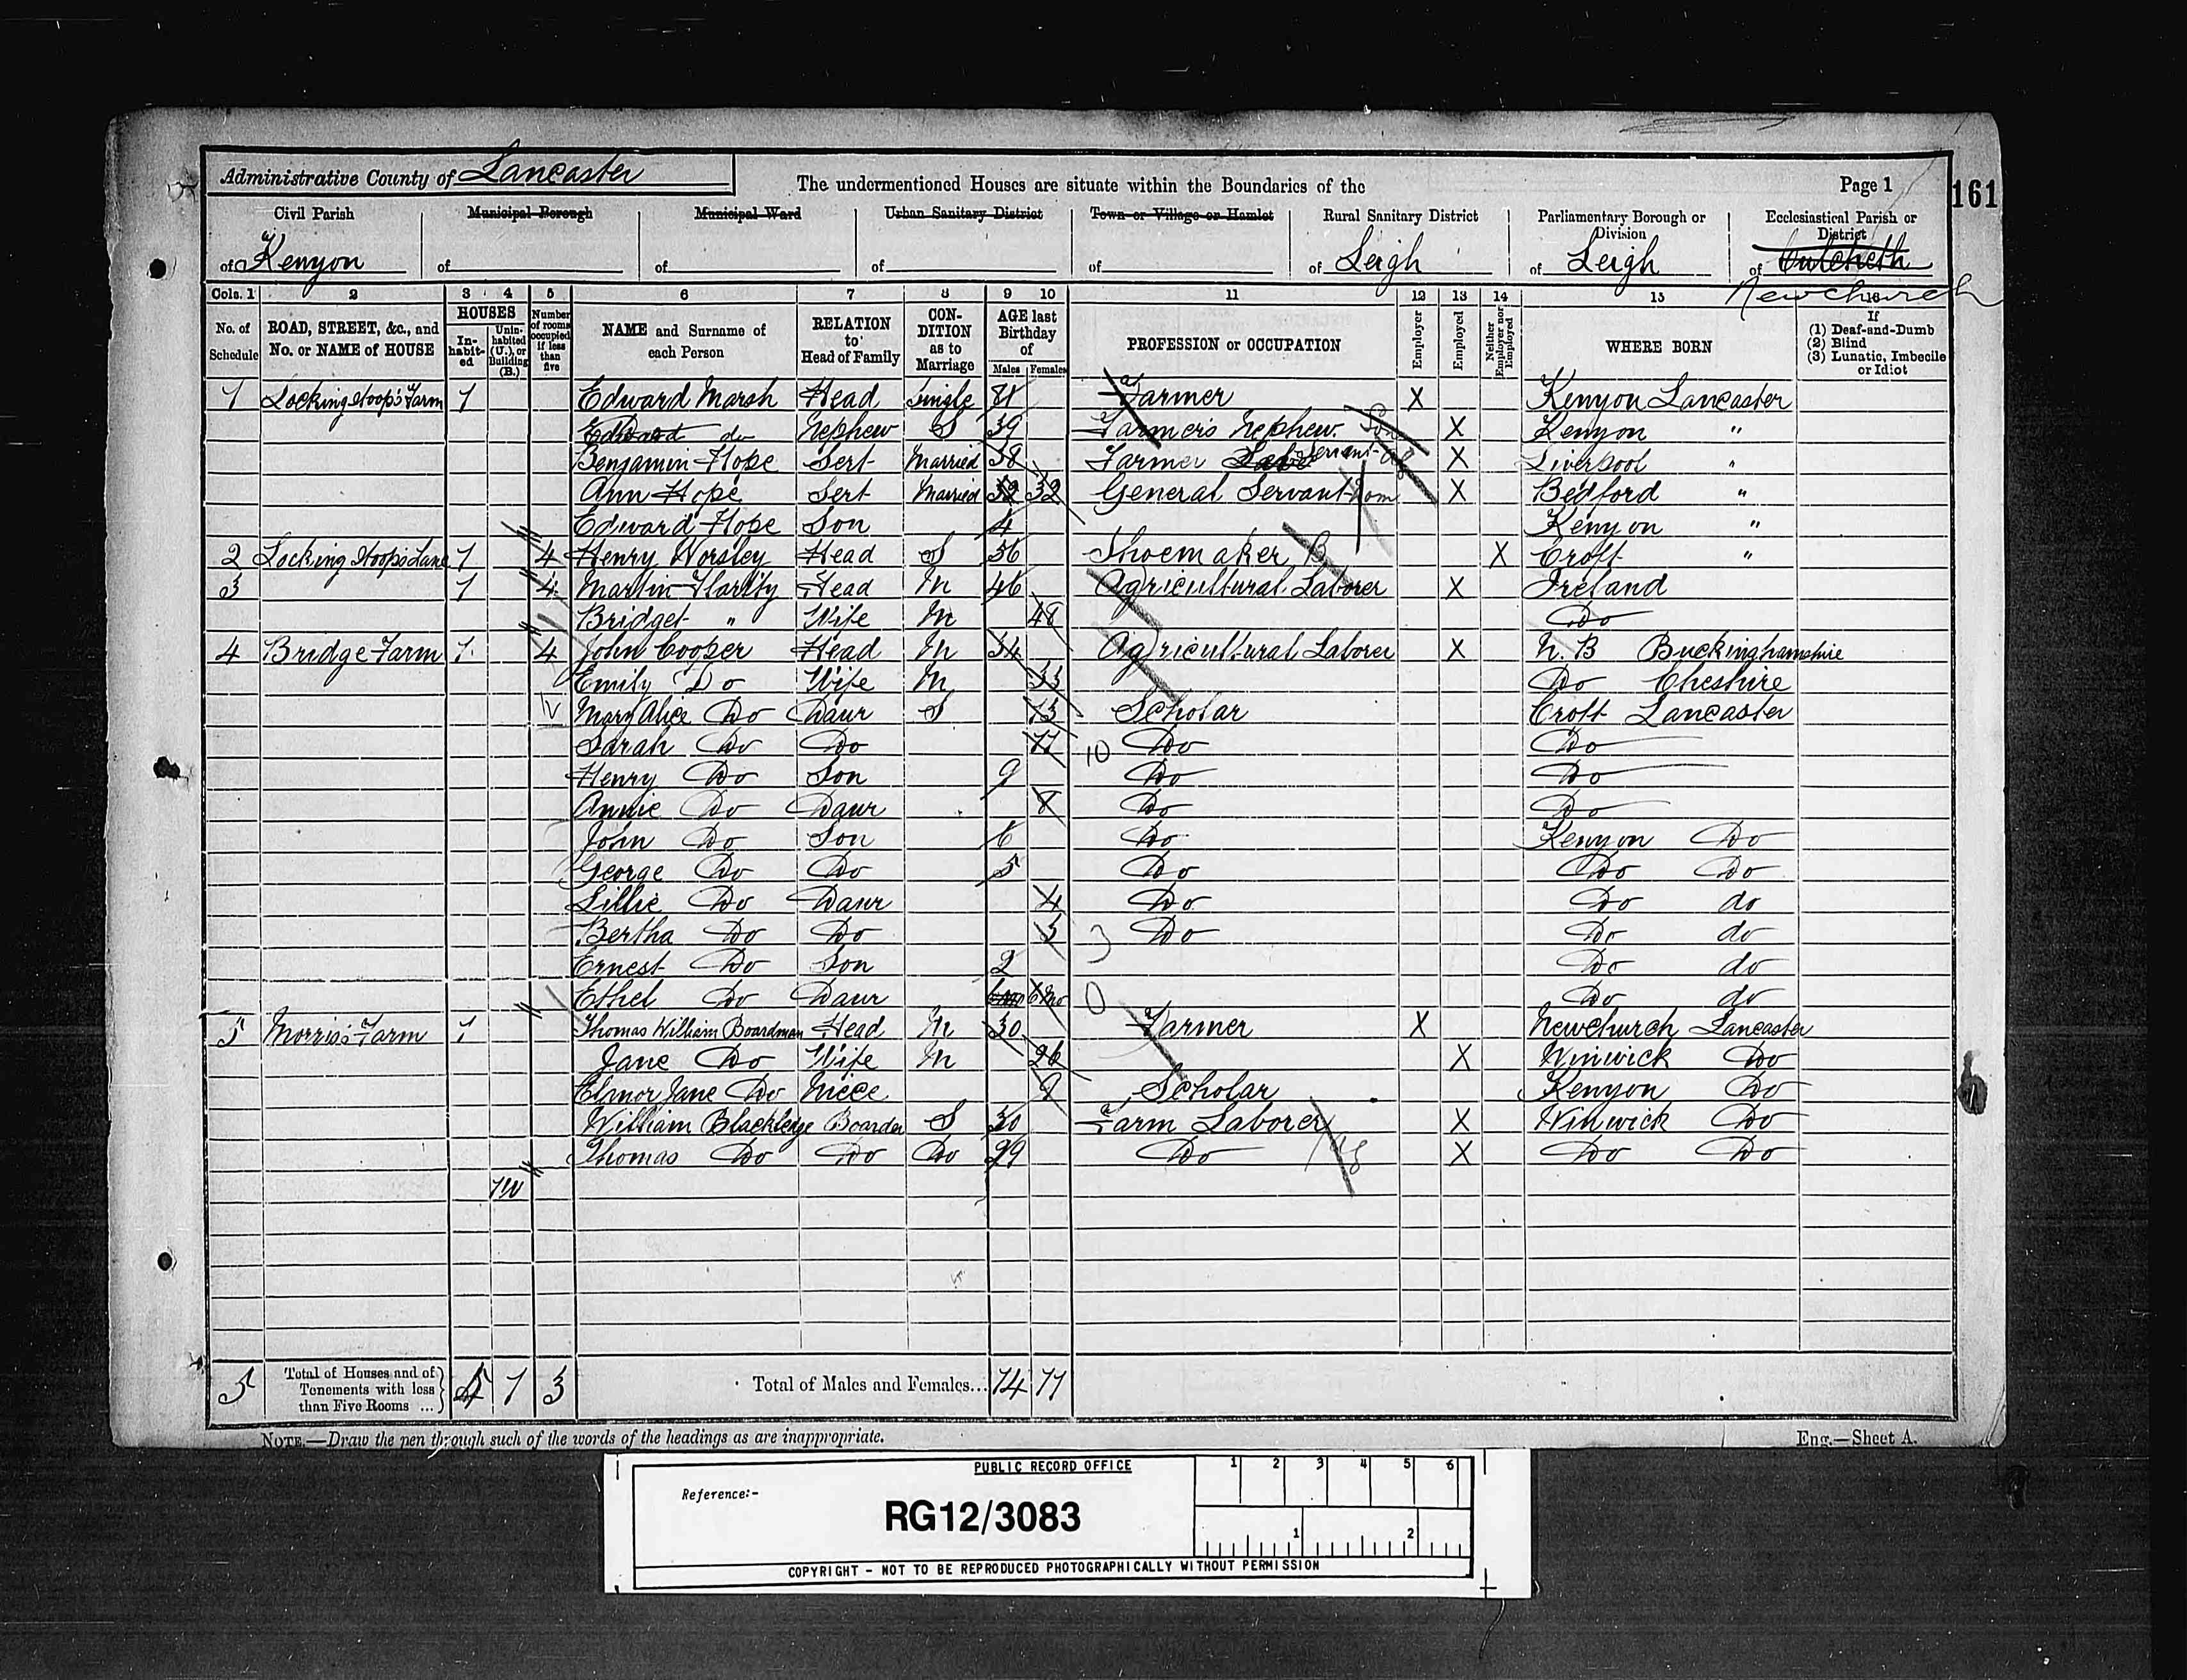 Administrative County of Lancaster
The undermentioned Houses are situate within the Boundaries of the
Page 1
161
Civil Parish of Kenyon
Municipal Borough of
Municipal Ward of
Urban Sanitary District of
Town or Village or Hamlet of
Rural Sanitary District of Leigh
Parliamentary Borough or Division of Leigh
Ecclesiastical Parish or District of Culcheth
Newchurch
Cols. 1 2 3 4 5 6 7 8 9 10 11 12 13 14 15 16
No. of Schedule
ROAD, STREET, &c., and No. or NAME of HOUSE
HOUSES
In-habit-ed
Unin-habited (U.), or Building (B.)
Number of rooms occupied if less than five
NAME and Surname of each Person
RELATION to Head of Family
CON-DITION as to Marriage
AGE last Birthday of
Males Females
PROFESSION or OCCUPATION
Employer
Employed
Neither Employer nor Employed
WHERE BORN
If (1) Deaf-and-Dumb (2) Blind (3) Lunatic, Imbecile or Idiot
1 Locking Stoop's Farm 1 Edward Marsh Head Single 81 Farmer X Kenyon Lancaster
Edward do Nephew S 39 Farmer's Nephew. Son X Kenyon "
Benjamin Hope Sert Married 38 Farmer Servant Ag X Liverpool "
Ann Hope Sert Married 32 32 General Servant Dom X Bedford "
Edward Hope Son 4 Kenyon "
2 Locking Stoop's Lane 1 4 Henry Worsley Head S 56 Shoemaker X Croft "
3 1 4 Martin Flarity Head M 46 Agricultural Laborer X Ireland
Bridget " Wife M 48 Do
4 Bridge Farm 1 4 John Cooper Head M 34 Agricultural Laborer X N. B Buckinghamshire
Emily Do Wife M 33 Do Cheshire
Mary Alice Do Daur S 13 Scholar Croft Lancaster
Sarah Do Do 11 10 Do Do
Henry Do Son 9 Do Do
Annie Do Daur 8 Do Do
John Do Son 6 Do Kenyon Do
George Do Do 5 Do Do Do
Lillie Do Daur 4 Do Do do
Bertha Do Do 3 3 Do Do do
Ernest Do Son 2 Do do
Ethel Do Daur 6mo 6mo 0 Do do
5 Morris's Farm 1 Thomas William Boardman Head M 30 Farmer X Newchurch Lancaster
Jane Do Wife M 26 X Winwick Do
Elinor Jane Do Niece 9 Scholar Kenyon Do
William Blackledge Boarder S 30 Farm Laborer X Winwick Do
Thomas Do Do Do 29 Do Ag X Do Do
1U
5 Total of Houses and of Tenements with less than Five Rooms ... 5 1 3 Total of Males and Females... 14 11
NOTE.—Draw the pen through such of the words of the headings as are inappropriate.
Eng.—Sheet A.
PUBLIC RECORD OFFICE
1 2 3 4 5 6
Reference:-
RG12/3083
1 2
COPYRIGHT - NOT TO BE REPRODUCED PHOTOGRAPHICALLY WITHOUT PERMISSION